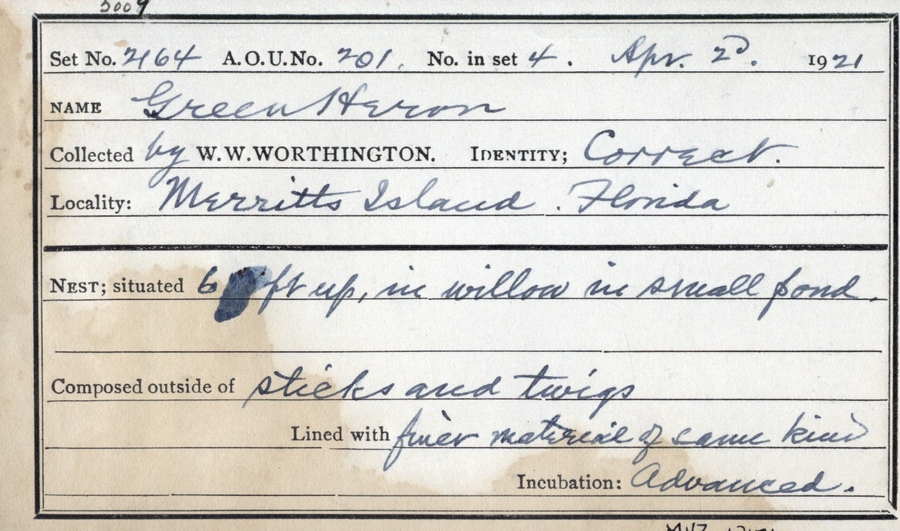 5009
Set No. 2164 A.O.U.No. 201. No. in set 4. Apr. 2d. 1921
NAME Green Heron
Collected by W.W.WORTHINGTON. IDENTITY; Correct.
Locality: Merritts Island. Florida
NEST; situated 6 ft up, in willow in small pond.
Composed outside of sticks and twigs
Lined with finer material of same kind
Incubation: Advanced.